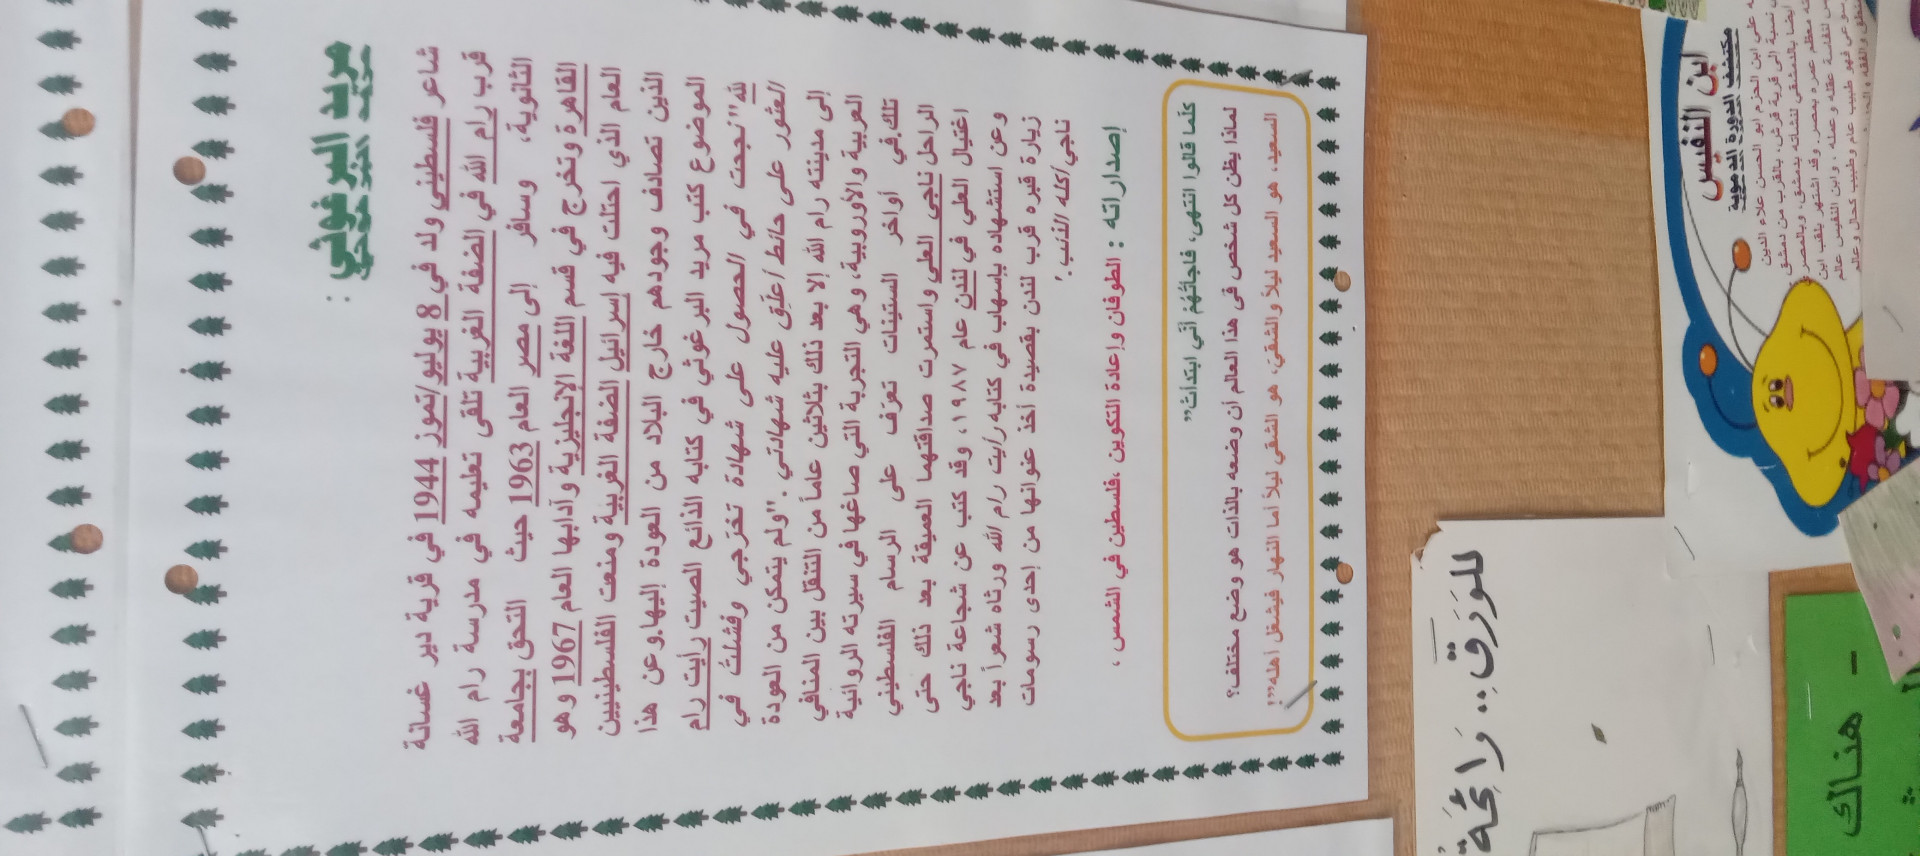 مريد البرغوثي :
شاعر فلسطيني ولد في 8 يوليو/تموز 1944 في قرية دير غسانة
قرب رام الله في الضفة الغربية تلقى تعليمه في مدرسة رام الله
الثانوية، وسافر إلى مصر العام 1963 حيث التحق بجامعة
القاهرة وتخرج في قسم اللغة الإنجليزية وآدابها العام 1967 وهو
العام الذي احتلت فيه إسرائيل الضفة الغربية ومنعت الفلسطينيين
الذين تصادف وجودهم خارج البلاد من العودة إليها.وعن هذا
الموضوع كتب مريد البرغوثي في كتابه الذائع الصيت رأيت رام
لله"نجحت في الحصول على شهادة تخرّجي وفشلتُ في
العثور على حائط أعلِّق عليه شهادتي ."ولم يتمكن من العودة
إلى مدينته رام الله إلا بعد ذلك بثلاثين عاماً من التنقل بين المنافي
العربية والأوروبية، وهي التجربة التي صاغها في سيرته الروائية
تلك.في أواخر الستينات تعرّف على الرسام الفلسطيني
الراحل ناجي العلي واستمرت صداقتهما العميقة بعد ذلك حتى
اغتيال العلي في لندن عام ١٩٨٧، وقد كتب عن شجاعة ناجي
وعن استشهاده بإسهاب في كتابه رأيت رام الله ورثاه شعراً بعد
زيارة قبره قرب لندن بقصيدة أخذ عنوانها من إحدى رسومات
ناجي/أكله الذئب.'
إصداراته : الطوفان وإعادة التكوين ،فلسطين في الشمس ،
كلما قالوا انتهى، فاجأتهُمْ أني ابتدأت”
لماذا يظن كل شخص في هذا العالم أن وضعه بالذات هو وضع مختلف؟
السعيد، هو السعيد ليلاً والشقيّ، هو الشقي ليلاً أما النهار فيشغل أهله””;
ابن النفيس
مكتشف الدورة الدموية
للوَرَقِ.. رَائِحَةٌ
هناك -